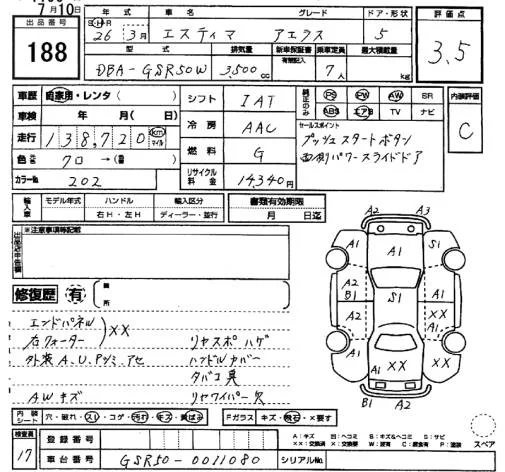 7月10日
年式 車名 グレード ドア・形状 評価点
出品番号 188
S・H・R 26年 3月 エスティマ アエラス 5 3.5
型式 排気量 新車保証書 有 記録簿 乗車定員 最大積載量
DBA-GSR50W 3,500cc 7人 kg
車歴 自家用・レンタ( )
車検 年 月( 日)
走行 138,720 km マイル
色 クロ→( )
カラーNo. 202
シフト IAT
冷房 AAC
燃料 G
リサイクル料金 14,340円
純正のみ PS PW AW SR ABS エアB TV ナビ
内装評価 C
セールスポイント
プッシュスタートボタン
両側パワースライドドア
輸入車 モデル年式 ハンドル 輸入区分 書類有効期限
年 右H・左H ディーラー・並行 月 日迄
※注意事項等記載
出品店申告欄
修復歴 有 箇所
エンドパネル
右クォーター XX
外装A.U.Pシミ.アセ
AWキズ
リヤスポハゲ
ハンドルカバー
タバコ臭
リヤワイパー欠
A2 A3
A1 A1 S1
A2 B1 S1 A1 XX
A2 A1 A1 XX XX
B1 A2
内装シート 穴・破れ・スレ・コゲ・汚れ・キズ・黄ばみ
Fガラス キズ・飛石・×要す
検査員 17
登録番号
車台番号 GSR50-0011080 シリアルNo.
A:キズ 凹:ヘコミ B:キズ&ヘコミ S:サビ
××:交換済 ×:要交換 W:波有 C:腐食有 P:塗装
スペア